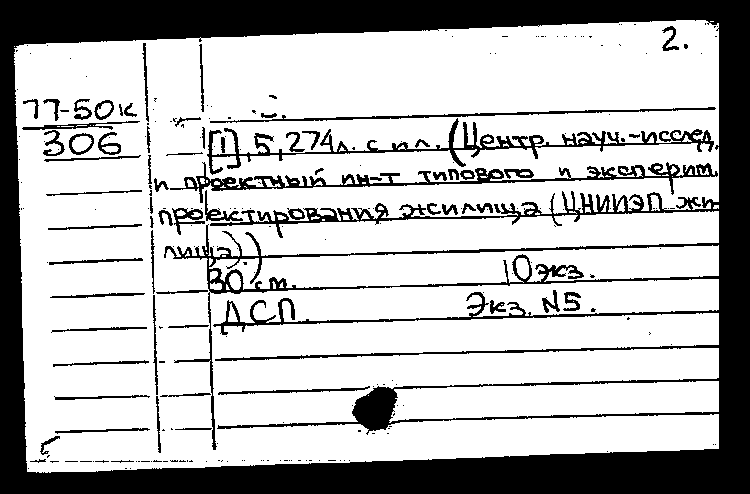 2.
77-50к
306
[1], 5, 274л. с ил. (Центр. науч.-исслед.
и проектный ин-т типового и эксперим.
проектирования жилища (ЦНИИЭП жи-
лища).)
30 см. 10 экз.
ДСП. Экз. N5.